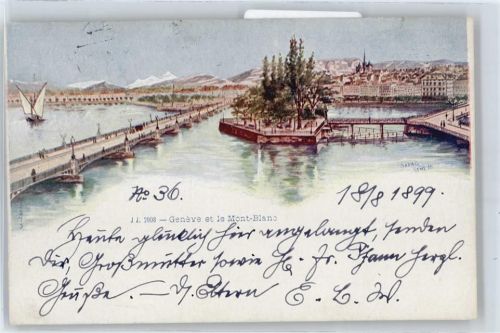 No 36.
18/8 1899.
J J. 7908 — Genève et le Mont-Blanc
Heute glücklich hier angelangt, senden
Dir, Großmutter sowie Fr. herzl.
Grüße. — D. Eltern E. L. W.